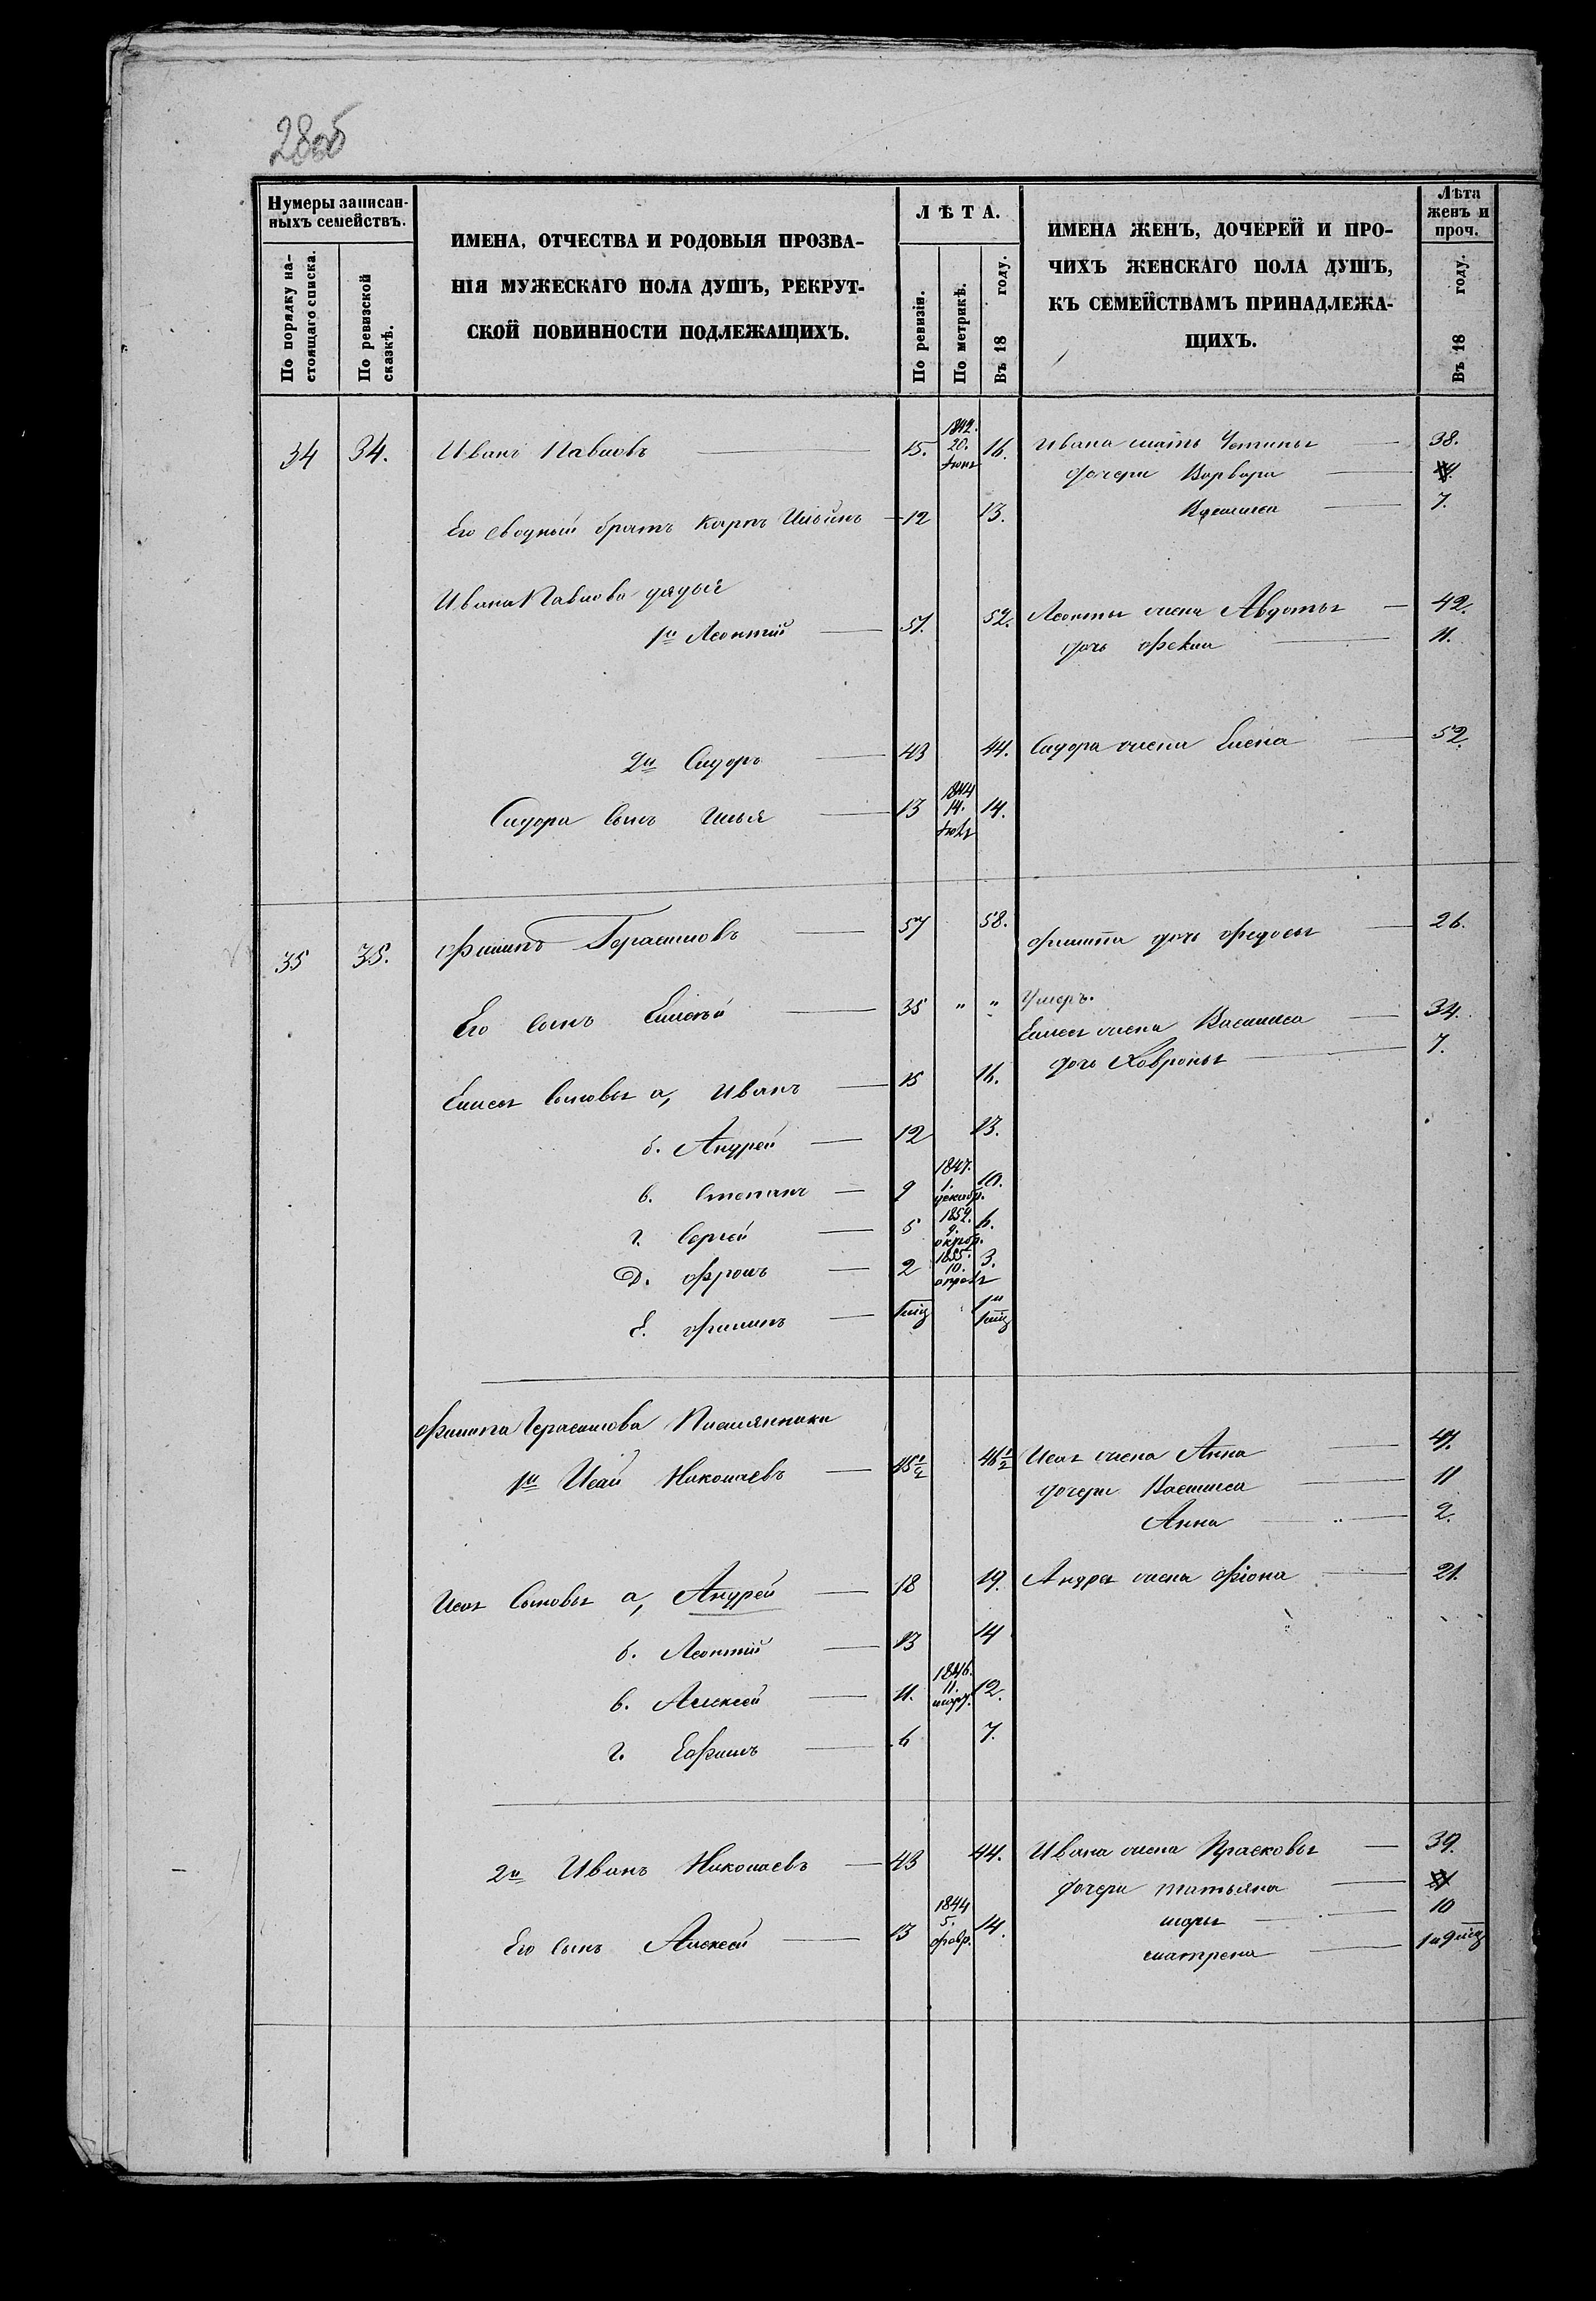 28об
Нумеры записан-
ныхъ семействъ.
По порядку на-
стоящаго списка.
По ревизской
сказкѣ.
ИМЕНА, ОТЧЕСТВА И РОДОВЫЯ ПРОЗВА-
НІЯ МУЖЕСКАГО ПОЛА ДУШЪ, РЕКРУТ-
СКОЙ ПОВИННОСТИ ПОДЛЕЖАЩИХЪ.
ЛѢТА.
По ревизіи.
По метрикѣ.
Въ 18 году.
ИМЕНА ЖЕНЪ, ДОЧЕРЕЙ И ПРО-
ЧИХЪ ЖЕНСКАГО ПОЛА ДУШЪ,
КЪ СЕМЕЙСТВАМЪ ПРИНАДЛЕЖА-
ЩИХЪ.
Лѣта
женъ и
проч.
Въ 18 году.
34 34. Иванъ Павловъ 15. 1842. 20. 16. Ивана мать 38.
дочери Варвара
Его сводный братъ Карпъ Ильинъ 12 13.
Василиса 7.
Ивана Павлова дядья
1й Леонтій 51. 52. Леонтья жена Авдотья 42.
дочь Фекла 11.
2й Сидоръ 43 44. Сидора жена Елена 52.
Сидора сынъ Илья 13 1844 14. 14.
35 35. Филипъ Герасимовъ 57 58. Филиппа дочь Федосья 26.
Его сынъ Елисѣй 35 " " Умеръ.
Елисея жена Василиса 34.
дочь Ховронья 7.
Елисея сыновья а, Иванъ 15 16.
б. Андрей 12 13.
в. Степанъ 9 1847. 1. декабр. 10.
г. Сергѣй 5 1852. 9. октяб. 6.
Д. Фролъ 2 1855. 10. 3.
Е. Филипъ 1 мц 1 и 1 мц
Филипа Герасимова Племянники
1й Исай Николаевъ 45 1/2 46 1/2 Исая жена Анна 47.
дочери Василиса 11
Анна 2.
Исая Сыновья а, Андрей 18 19. Андрея жена Фіона 21.
б. Леонтій 13 14
в. Алексѣй 11. 1846. 11. март. 12.
г. Ефимъ 6 7.
2й Иванъ Николаевъ 43 44. Ивана жена Прасковья 39.
дочери Татьяна
Его сынъ Алексѣй 13 1844 5. февр. 14.
марья 10
матрена 1 и 9 мѣц